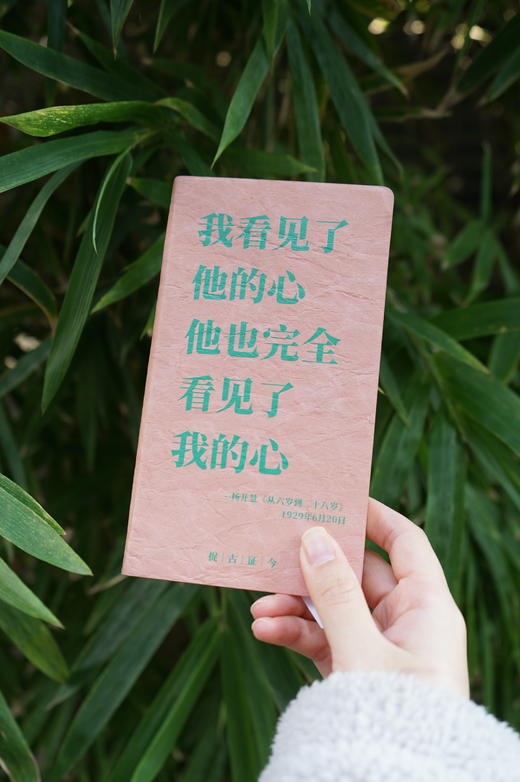 我看见了
他的心
他也完全
看见了
我的心
—杨开慧《从六岁到二十八岁》
1929年6月20日
掘|古|证|今